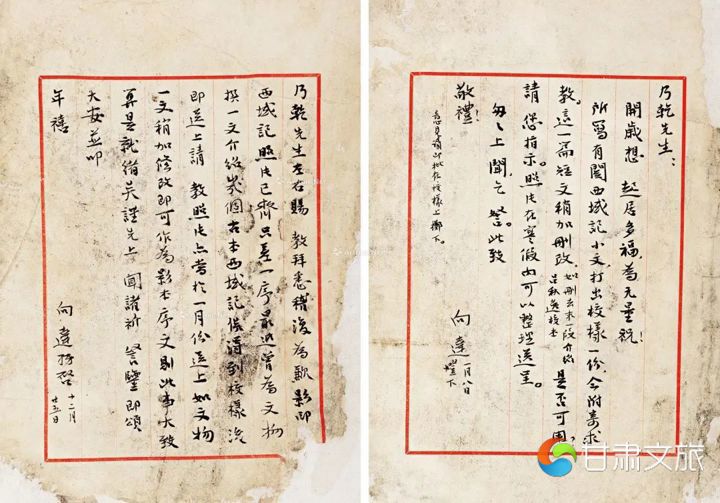 乃乾先生左右賜 教拜悉稽復為歉影印
西域記照片已齊只差一序最近曾為文物
撰一文介紹幾個古本西域記俟得到校樣後
即送上請 教照片亦當於一月份送上如文物
一文稍加修改即可作為影本序文則此事大致
算是就緒矣謹先上聞諸祈 詧鑒即頌
大安並叩
年禧
向達拜啓 十二月
廿五日
乃乾先生：
開歲想 起居多福，為无量祝！
所寫有關西域記小文，打出校樣一份，今附寄求
教。這一篇短文稍加刪改，如刪去末一段介紹
呂秋逸校本 是否可用？
請 您指示。照片在寒假内可以整理送呈。
匆匆上聞，乞 詧。此致
敬禮！
向達 一月八日
燈下
意見請即批在校樣上擲下。
甘肃文旅